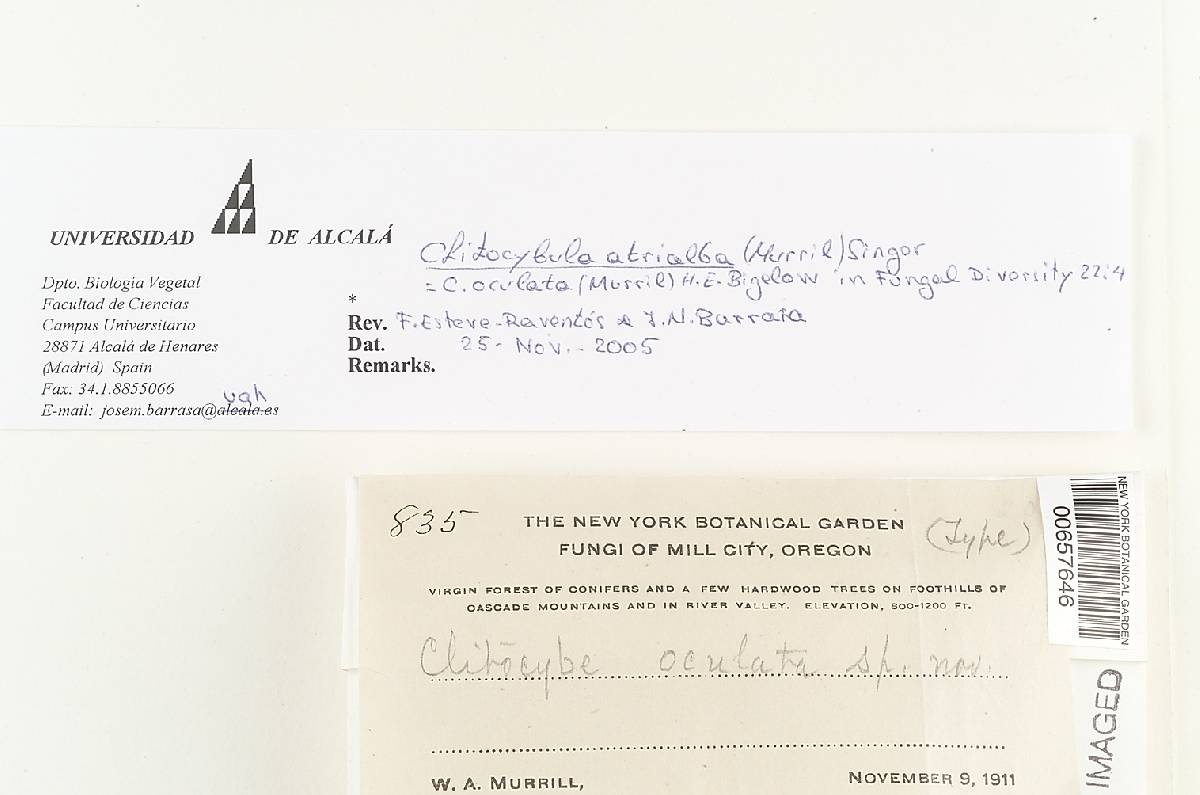 UNIVERSIDAD DE ALCALÁ
Dpto. Biología Vegetal
Facultad de Ciencias
Campus Universitario
28871 Alcalá de Henares
(Madrid) Spain
Fax: 34.1.8855066
uah
E-mail: josem.barrasa@alcala.es
Clitocybula atrialba (Murril) Singer
= C. oculata (Murril) H.E. Bigelow in Fungal Diversity 22:4
*
Rev. F. Esteve-Raventós & J.M. Barrasa
Dat. 25- Nov.- 2005
Remarks.
835
THE NEW YORK BOTANICAL GARDEN
(Type)
FUNGI OF MILL CITY, OREGON
VIRGIN FOREST OF CONIFERS AND A FEW HARDWOOD TREES ON FOOTHILLS OF
CASCADE MOUNTAINS AND IN RIVER VALLEY. ELEVATION, 800-1200 FT.
Clitocybe oculata sp. nov.
W. A. MURRILL,
NOVEMBER 9, 1911
NEW YORK BOTANICAL GARDEN
00657646
IMAGED